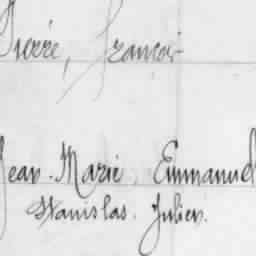 Pierre, François
Jean-Marie, Emmanuel
Stanislas. Julien.